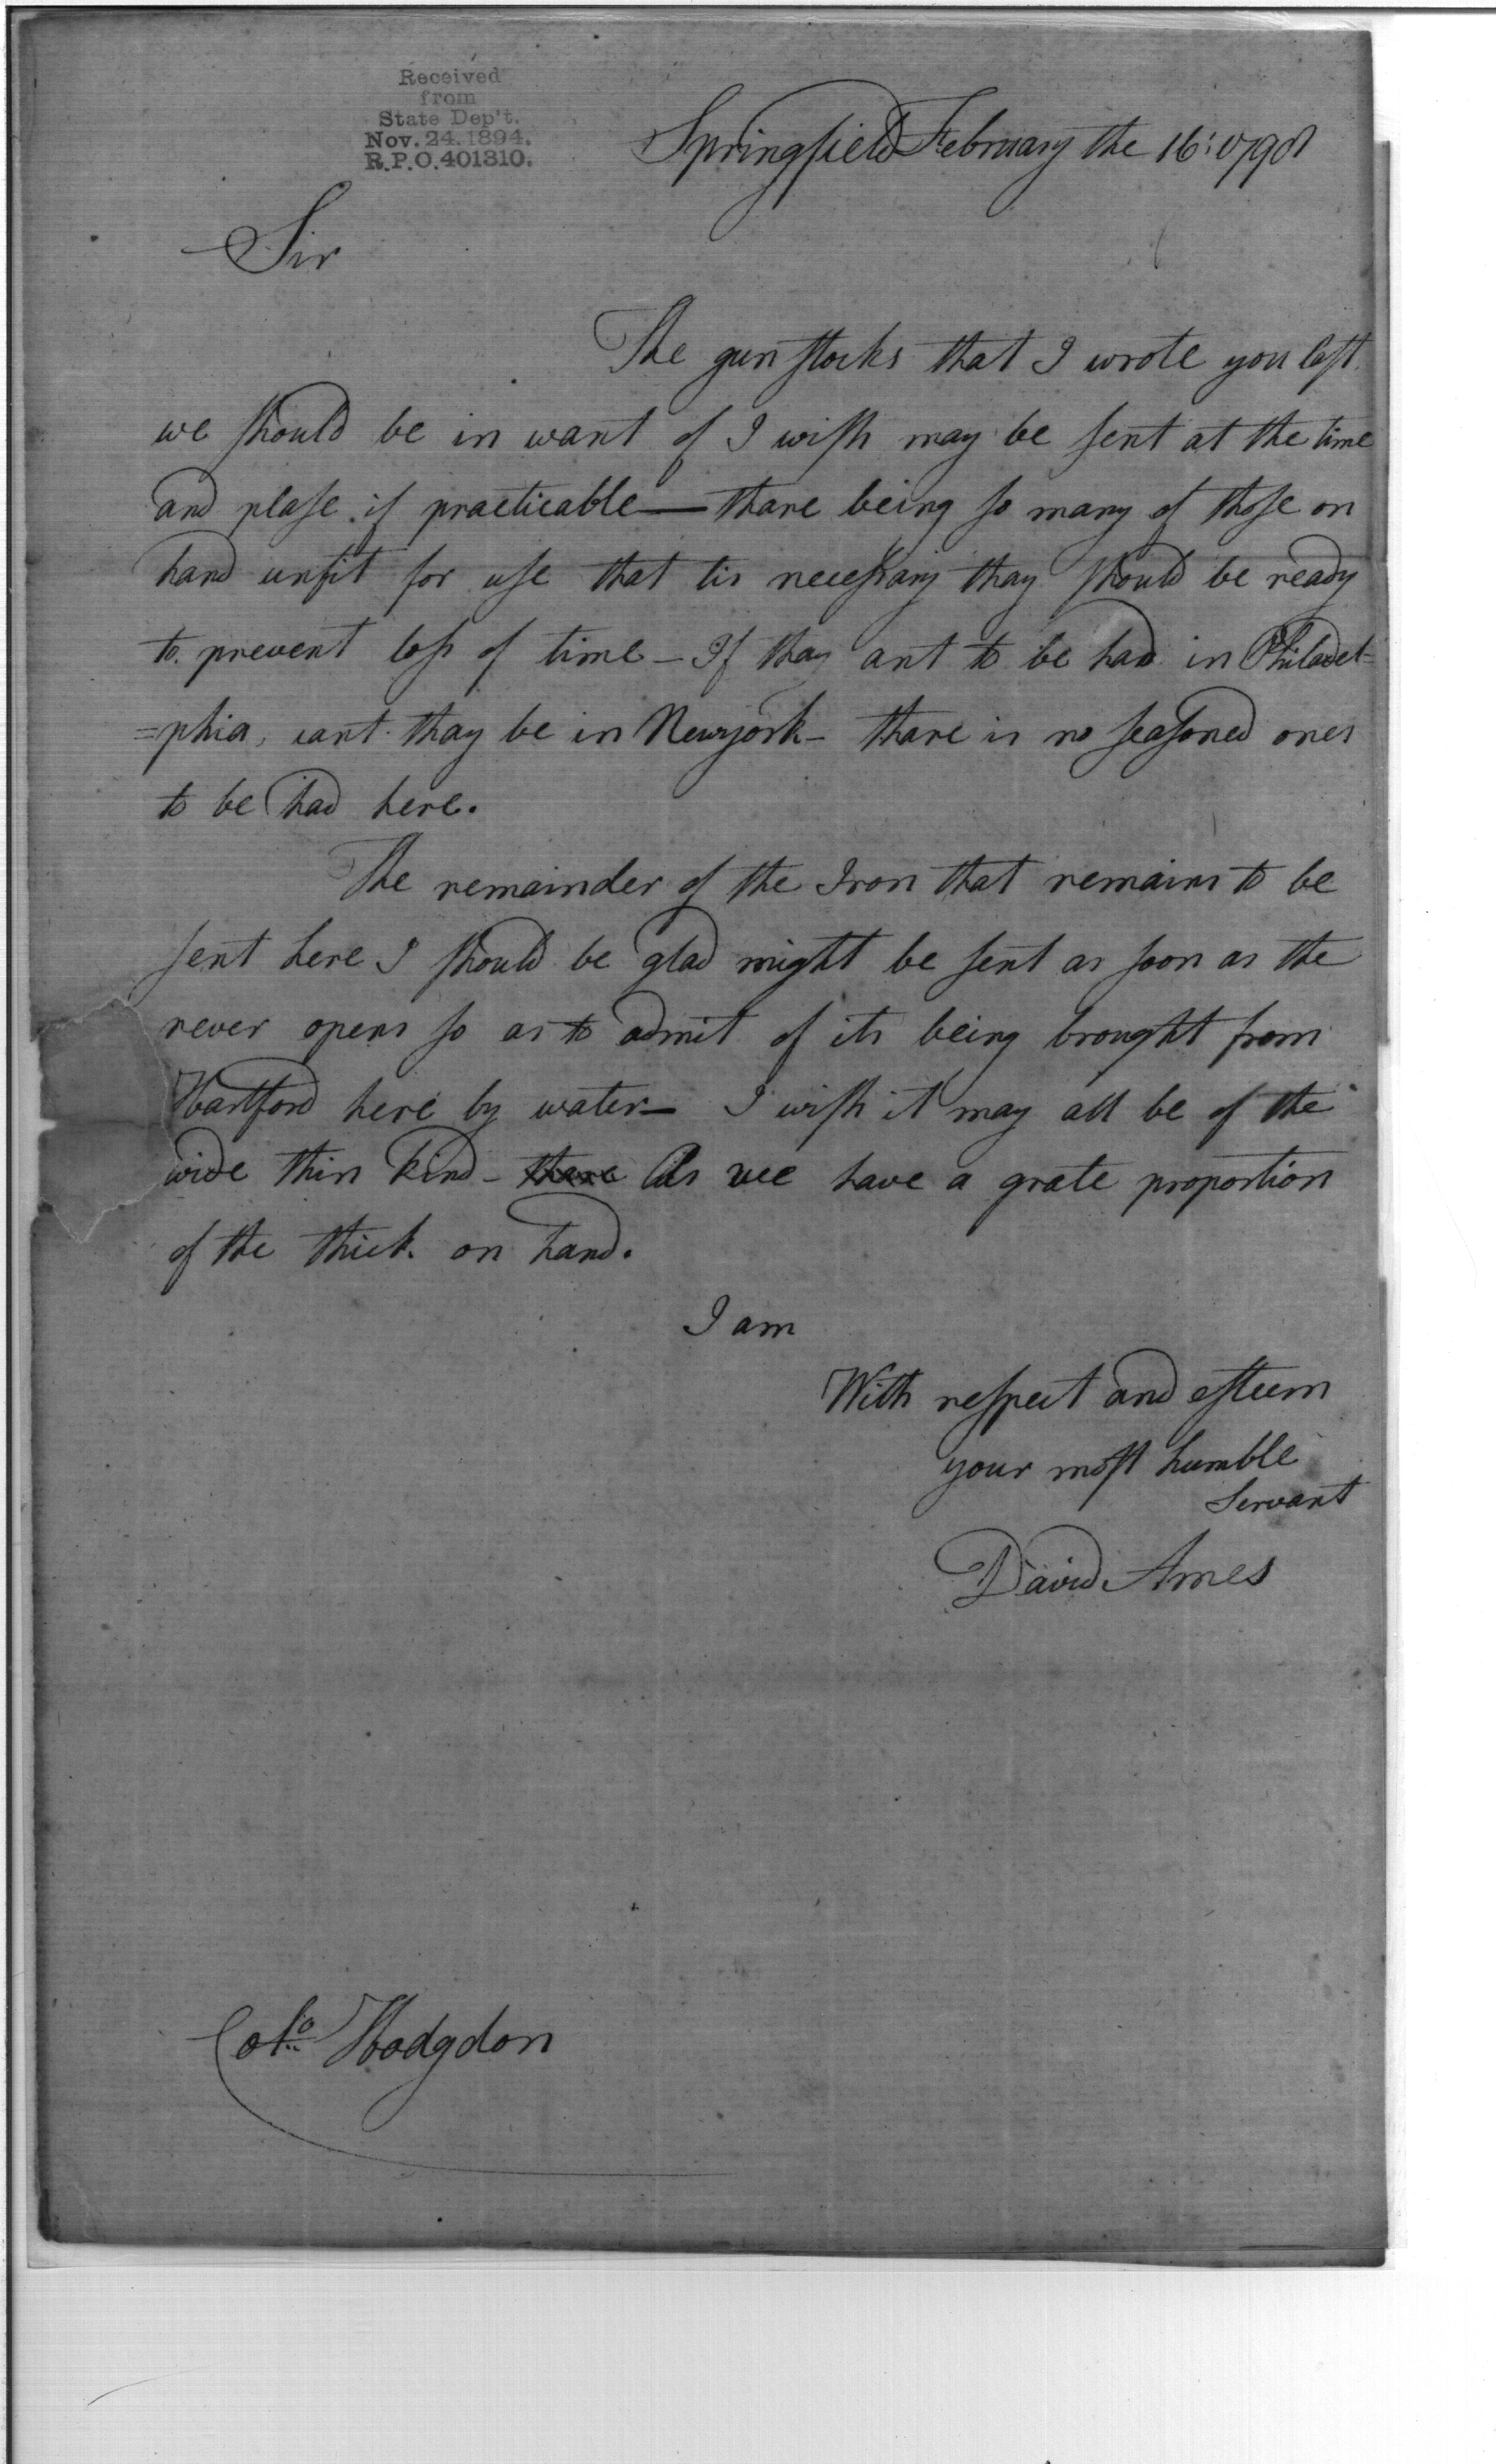 Received
from
State Dep't.
Nov. 24. 1894.
R.P.O. 401310.
Springfield February the 16: 1798
Sir
The gun stocks that I wrote you last
we should be in want of I wish may be sent at the time
and plase if practicable — thare being so many of those on
hand unfit for use that tis necessary thay should be ready
to prevent loss of time – If thay ant to be had in Philadel=
=phia, cant thay be in Newyork – thare is no seasoned ones
to be had here.
The remainder of the Iron that remains to be
sent here I should be glad might be sent as soon as the
rever opens so as to admit of its being brought from
Hartford here by water – I wish it may all be of the
wide thin kind – thare As wee have a grate proportion
of the thick on hand.
I am
With respect and esteem
your most humble
Servant
David Ames
Colo Hodgdon